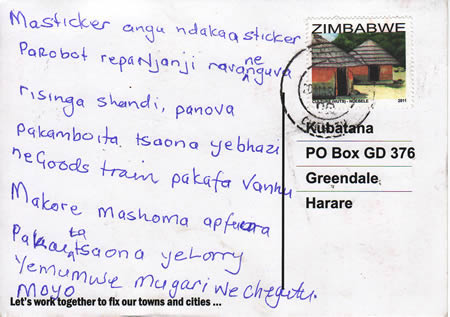 Masticker angu ndakaasticker
Parobot repanjanji rava nenguva
risinga shandi, panova
pakamboita tsaona yebhazi
neGoods train pakafa vanhu
Makore mashoma apfuura
tsaona yeLorry
Yemumwe mugari weChegutu.
Moyo
Let's work together to fix our towns and cities ...
ZIMBABWE
CULTURE (HUTS) - NDEBELE
2011
Kubatana
PO Box GD 376
Greendale
Harare